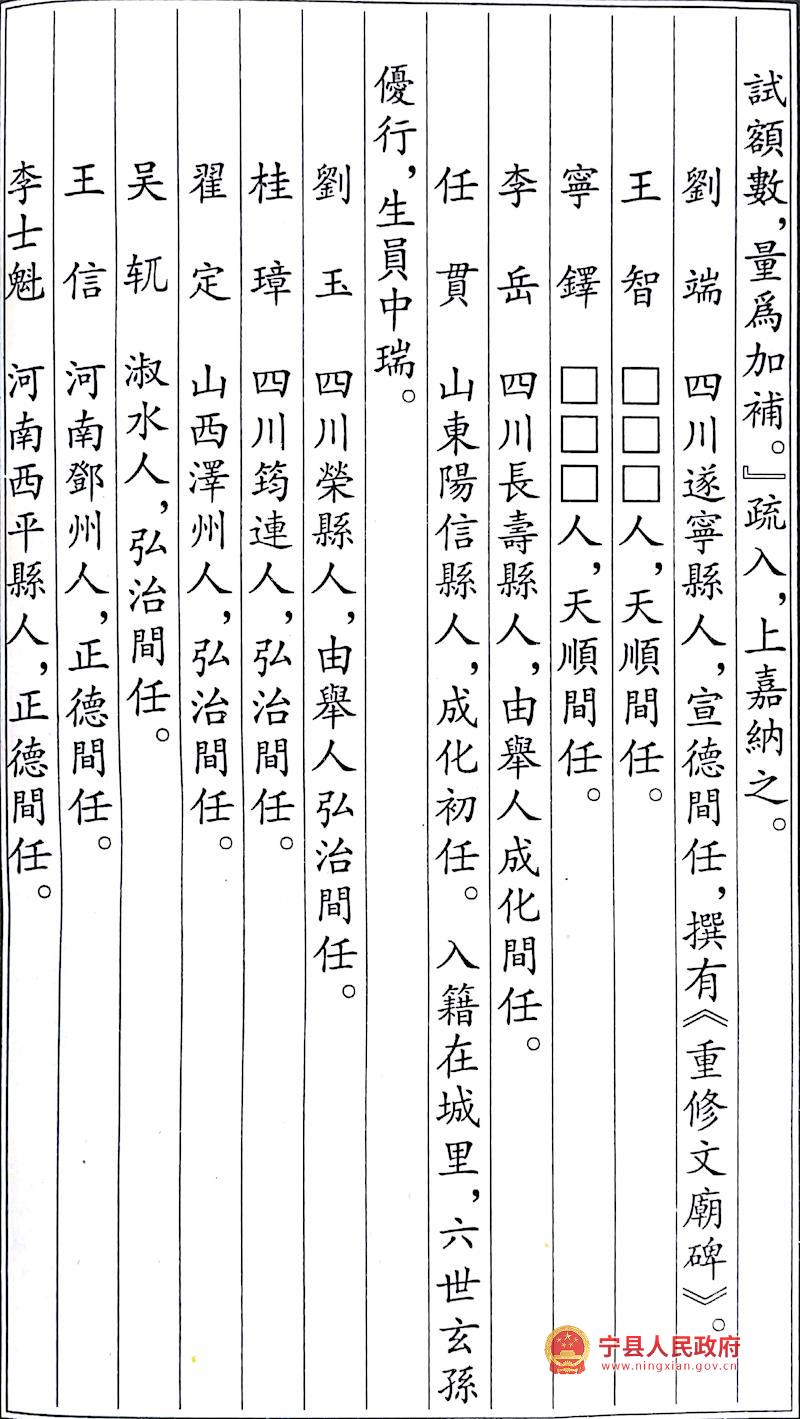 試額數，量爲加補。』疏入，上嘉納之。
劉端 四川遂寧縣人，宣德間任，撰有《重修文廟碑》。
王智 □□□人，天順間任。
寧鐸 □□□人，天順間任。
李岳 四川長壽縣人，由舉人成化間任。
任貫 山東陽信縣人，成化初任。入籍在城里，六世玄孫
優行，生員中瑞。
劉玉 四川榮縣人，由舉人弘治間任。
桂璋 四川筠連人，弘治間任。
翟定 山西澤州人，弘治間任。
吴軏 淑水人，弘治間任。
王信 河南鄧州人，正德間任。
李士魁 河南西平縣人，正德間任。
宁县人民政府
www.ningxian.gov.cn